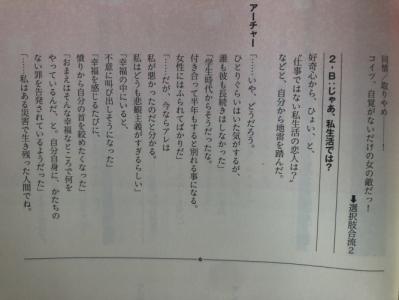 同情/取りやめ
コイツ、自覚がないだけの女の敵だっ!
➡選択肢合流2
2-B:じゃあ、私生活では?
好奇心から、ひょい、と、
“仕事ではない私生活の恋人は?”
などと、自分から地雷を踏んだ。
アーチャー
「……いや、どうだろう。
ひとりぐらいはいた気がするが、
誰も彼も長続きはしなかった」
「学生時代からそうだったな。
付き合って半年もすると別れる事になる。
女性にはふられてばかりだ」
「……だが、今ならアレは
私が悪かったのだと分かる。
私はどうも悲観主義がすぎるらしい」
「幸福の中にいると、
不意に叫び出しそうになった」
「幸福を感じるたびに、
憤りから自分の首を絞めたくなった」
「おまえはそんな幸福なところで何を
やっているんだ、と。自分自身に、かたちの
ない罪を告発されているようだった」
「……私はある災害で生き残った人間でね。